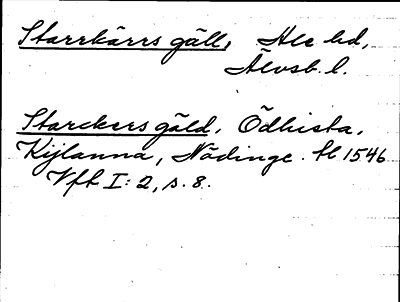 Starrkärrs gäll, Ale hd,
Älvsb. l.
Starckers gäld, Ödhista,
Kijlanna, Nödinge. hl 1546
Vfh I: 2, s. 8.